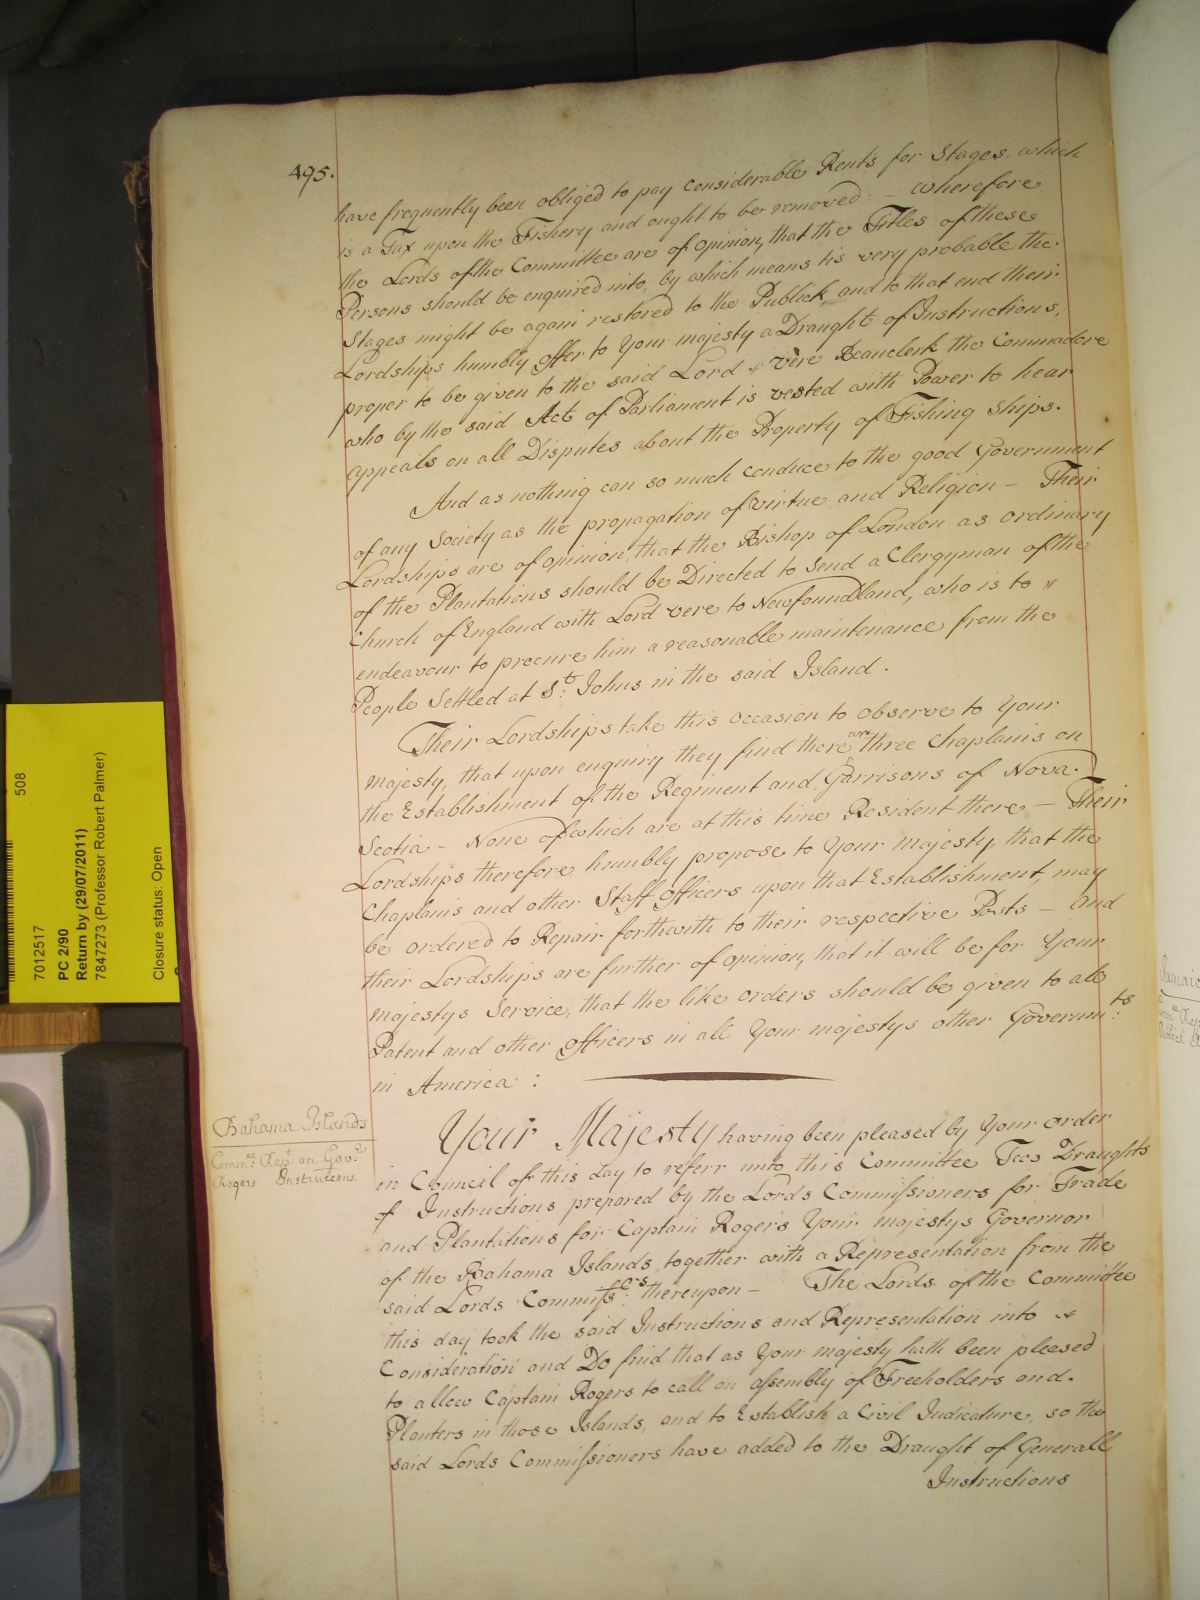 495.
have frequently been obliged to pay considerable Rents for Stages, which
is a Tax upon the Fishery and ought to be removed — wherefore
the Lords of the Committee are of opinion, that the Titles of these
Persons should be enquired into, by which means tis very probable the
Stages might be again restored to the Publick, and to that end their
Lordships humbly offer to Your majesty a Draught of Instructions,
proper to be given to the said Lord Vere Beauclerk the Commadore
who by the said Act of Parliament is vested with Power to hear
appeals on all Disputes about the Property of Fishing Ships.
And as nothing can so much conduce to the good Government
of any Society as the propagation of Virtue and Religion — Their
Lordships are of opinion, that the Bishop of London as ordinary
of the Plantations should be Directed to send a Clergyman of the
Church of England with Lord Vere to Newfoundland, who is to
endeavour to procure him a reasonable maintenance from the
People Settled at St. Johns in the said Island.
Their Lordships take this occasion to observe to Your
majesty, that upon enquiry they find there are three Chaplains on
the Establishment of the Regiment and Garrisons of Nova
Scotia — None of which are at this time Resident there — Their
Lordships therefore humbly propose to Your majesty, that the
Chaplains and other Staff officers upon that Establishment, may
be ordered to Repair forthwith to their respective Posts — And
their Lordships are further of opinion, that it will be for Your
majestys Service, that the like orders should be given to all
Patent and other officers in all Your majestys other Governmts:
in America :
Bahama Islands
Commee: Rept. on Govr.
Rogers Instructions.
Your Majesty having been pleased by Your order
in Council of this day to referr unto this Committee Two Draughts
of Instructions prepared by the Lords Commissioners for Trade
and Plantations for Captain Rogers Your majestys Governor
of the Bahama Islands, together with a Representation from the
said Lords Commissrs: thereupon — The Lords of the Committee
this day took the said Instructions and Representation into
Consideration and Do find that as Your majesty hath been pleased
to allow Captain Rogers to call an assembly of Freeholders and
Planters in those Islands, and to Establish a Civil Judicature, so the
said Lords Commissioners have added to the Draught of Generall
Instructions
508
7012517
PC 2/90
Return by (29/07/2011)
7847273 (Professor Robert Palmer)
Closure status: Open